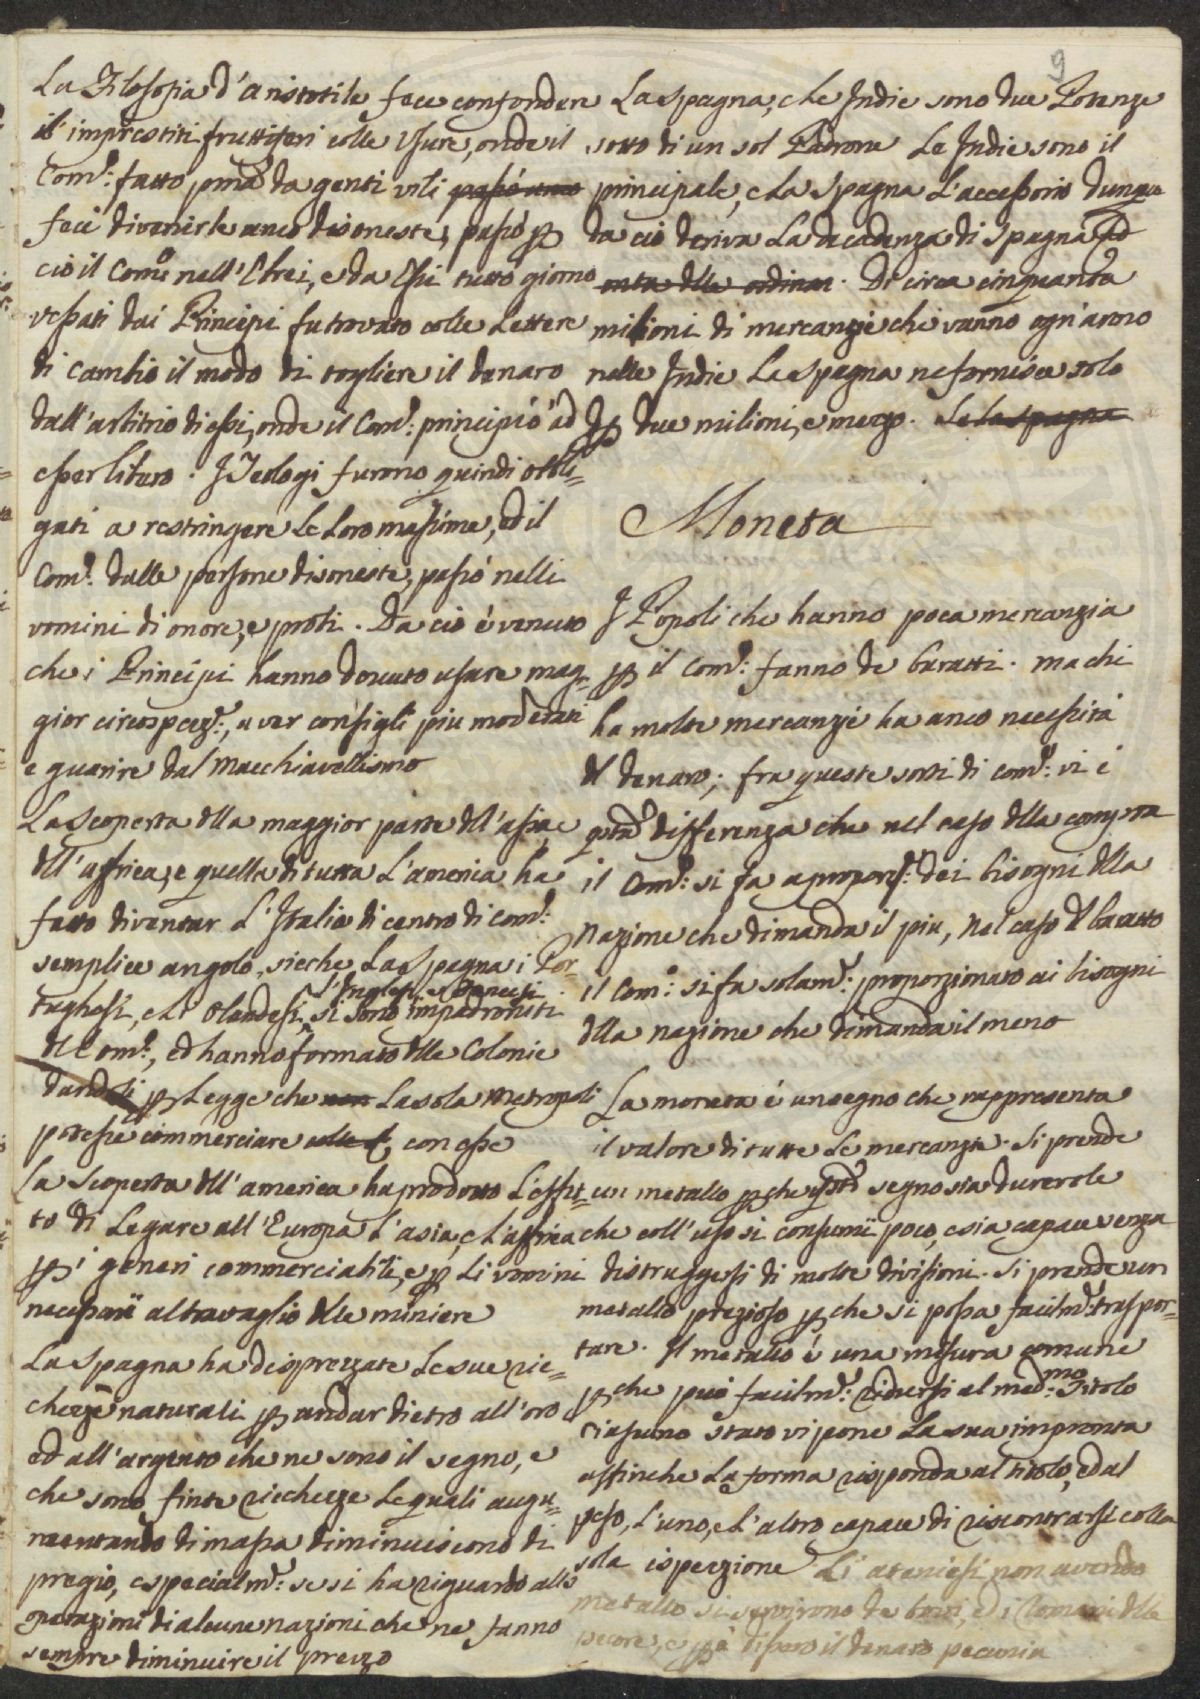 9
La Filosofia d'aristotile fece confondere
il imprestiti fruttiferi colle Usure, onde il
Com.º: fatto prima da genti vili passò anco
feci divenirle anco disoneste, passò p
ciò il Com.º nell'Ebrei, e da Essi tutto giorno
vessati dai Principi fu trovato colle Lettere
di Cambio il modo di togliere il denaro
dall'arbitrio di essi, onde il Com.º: principiò ad
esser libero. I Teologi furono quindi obbli=
gati a restringere le loro massime, ed il
Com.º: dalle persone disoneste, passò nelli
uomini di onore, e probi. Da ciò è venuto
che i Principi hanno dovuto usare mag=
gior circospez.e, aver consigli piu moderati
e guarire dal Macchiavellismo
La Scoperta dlla maggior parte dll'asia, e
dll'affrica, e quella di tutta L'america ha
fatto diventar L'Italia di centro di com.º:
semplice angolo, sicche La Spagna i Por=
Inglesi, e Francesi
tughesi, e li Olandesi, si sono impadroniti
dl Com.º, ed hanno formato dlle Colonie
dandoli p Legge che non La sola Metropoli
potesse commerciare colle con esse
La Scoperta dll'america ha prodotto L'effet=
to di Legare all'Europa L'asia, e L'affrica
p i generi commerciabili, e p Li uomini
necessarii al travaglio dlle miniere
La Spagna ha disprezzate Le sue ric=
chezze naturali p andar dietro all'oro
ed all'argento che ne sono il segno, e
che sono finte ricchezze Le quali augu=
mentando di massa diminuiscono di
pregio, especialm.e: se si ha riguardo alle
operazioni di alcune nazioni che ne fanno
sempre diminuire il prezzo
La Spagna, e le Indie sono due Potenze
sotto di un sol Padrone Le Indie sono il
principale, e La Spagna L'accessorio dunque
da ciò deriva La decadenza di Spagna ad
onta dlle ordinar. Di circa cinquanta
milioni di mercanzie che vanno ogn'anno
nelle Indie La Spagna ne fornisce solo
p due milioni, e mezzo. Se la Spagna
Moneta
I Popoli che hanno poca mercanzia
p il Com.º: fanno de baratti. ma chi
ha molte mercanzie ha anco necessità
dl denaro; fra queste sorti di com.º: vi è
qta differenza che nel caso dlla compra
il Com.º: si fa a proporz.e: dei bisogni dlla
Nazione che dimanda il piu, Nel caso dl baratto
il Com.º: si fa solam.e: proporzionato ai bisogni
dlla nazione che dimanda il meno
La moneta è un segno che rappresenta
il valore di tutte Le mercanzie. Si prende
un metallo p che qsto segno sia durevole
che coll'uso si consumi poco, e sia capace senza
distruggersi di molte divisioni. Si prende un
metallo prezioso p che si possa facilm.e: traspor=
tare. Il metallo è una misura comune
p che può facilm.e: ridursi al med.mo Titolo
Ciascuno Stato vi pone La sua impronta
affinche La forma risponda al titolo, ed al
peso, L'uno, e L'altro capace di riscontrarsi colla
sola ispezzione Li ateniesi non avendo
metallo si servirono de bovi, ed i Romani dlle
pecore, e p è disporo il denaro pecunia